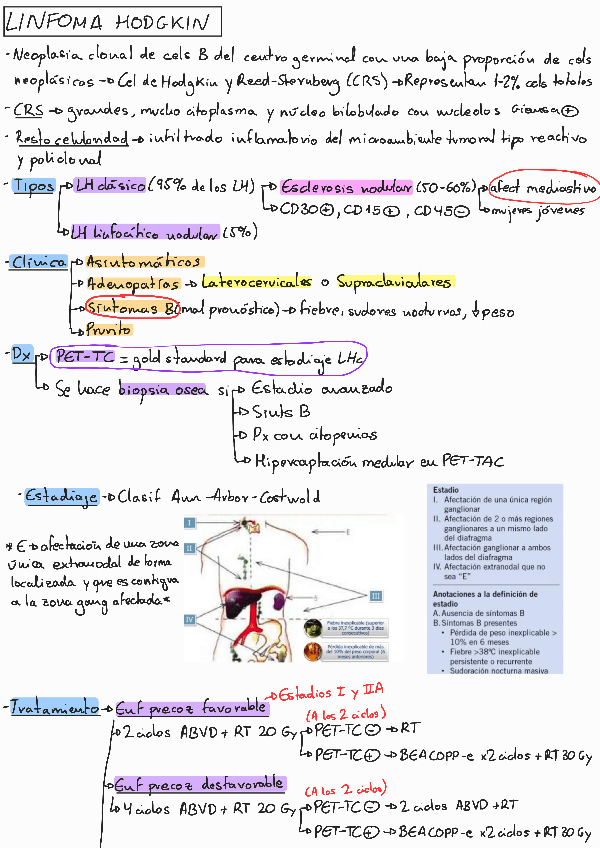 LINFOMA HODGKIN
- Neoplasia clonal de cels B del centro germinal con una baja proporción de cels
neoplásicos → Cel de Hodgkin y Reed-Sternberg (CRS) → Representan 1-2% cels totales
- CRS → grandes, mucho citoplasma y núcleo bilobulado con nucleolos Giemsa ⊕
- Resto celularidad → infiltrado inflamatorio del microambiente tumoral tipo reactivo
y policlonal
- Tipos → LH clásico (95% de los LH) → Esclerosis nodular (50-60%) → afect mediastino
→ CD30 ⊕, CD15 ⊕, CD45 ⊖ → mujeres jóvenes
→ LH linfocítico nodular (5%)
- Clínica → Asintomáticos
→ Adenopatías → Laterocervicales o Supraclaviculares
→ Síntomas B (mal pronóstico) → fiebre, sudores nocturnos, ↓ peso
→ Prurito
- Dx → PET-TC = gold standard para estadiaje LHc
→ Se hace biopsia osea si → Estadio avanzado
→ Sints B
→ Px con citopenias
→ Hipercaptación medular en PET-TAC
- Estadiaje → Clasif Ann-Arbor-Costwold
* E → afectación de una zona
única extranodal de forma
localizada y que es contigua
a la zona gang afectada *
I
II
III
IV
E
S
Fiebre inexplicable (superior
a los 37,7 °C durante 3 días
consecutivos)
Pérdida inexplicable de más
del 10% del peso corporal (6
meses anteriores)
Estadio
I. Afectación de una única región
ganglionar
II. Afectación de 2 o más regiones
ganglionares a un mismo lado
del diafragma
III. Afectación ganglionar a ambos
lados del diafragma
IV. Afectación extranodal que no
sea "E"
Anotaciones a la definición de
estadio
A. Ausencia de síntomas B
B. Síntomas B presentes
• Pérdida de peso inexplicable >
10% en 6 meses
• Fiebre >38ºC inexplicable
persistente o recurrente
• Sudoración nocturna masiva
- Tratamiento → Enf precoz favorable → Estadios I y IIA
(A los 2 ciclos)
→ 2 ciclos ABVD + RT 20 Gy → PET-TC ⊖ → RT
→ PET-TC ⊕ → BEACOPP-e x2 ciclos + RT 30 Gy
→ Enf precoz desfavorable
(A los 2 ciclos)
→ 4 ciclos ABVD + RT 20 Gy → PET-TC ⊖ → 2 ciclos ABVD + RT
→ PET-TC ⊕ → BEACOPP-e x2 ciclos + RT 30 Gy